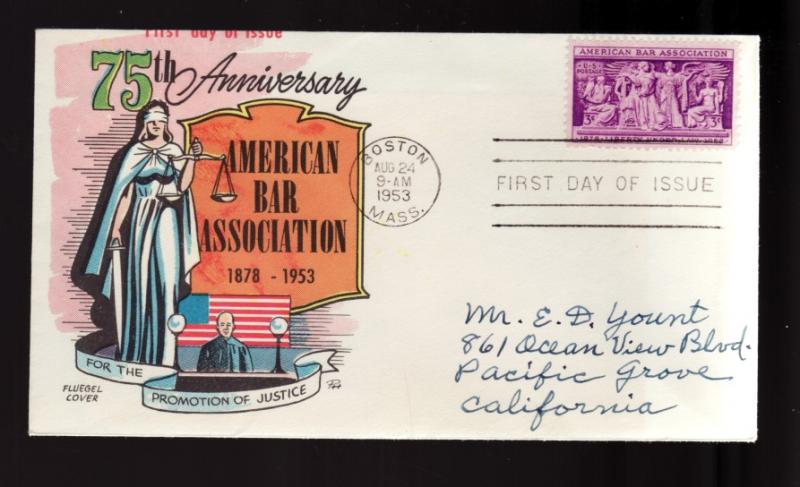 First day of issue
75th Anniversary
AMERICAN
BAR
ASSOCIATION
1878 - 1953
FOR THE
PROMOTION OF JUSTICE
FLUEGEL
COVER
BOSTON
AUG 24
9-AM
1953
MASS.
AMERICAN BAR ASSOCIATION
U·S·
POSTAGE
3¢ 3¢
1878·LIBERTY UNDER LAW·1953
FIRST DAY OF ISSUE
Mr. E. D. Yount
861 Ocean View Blvd.
Pacific Grove
California